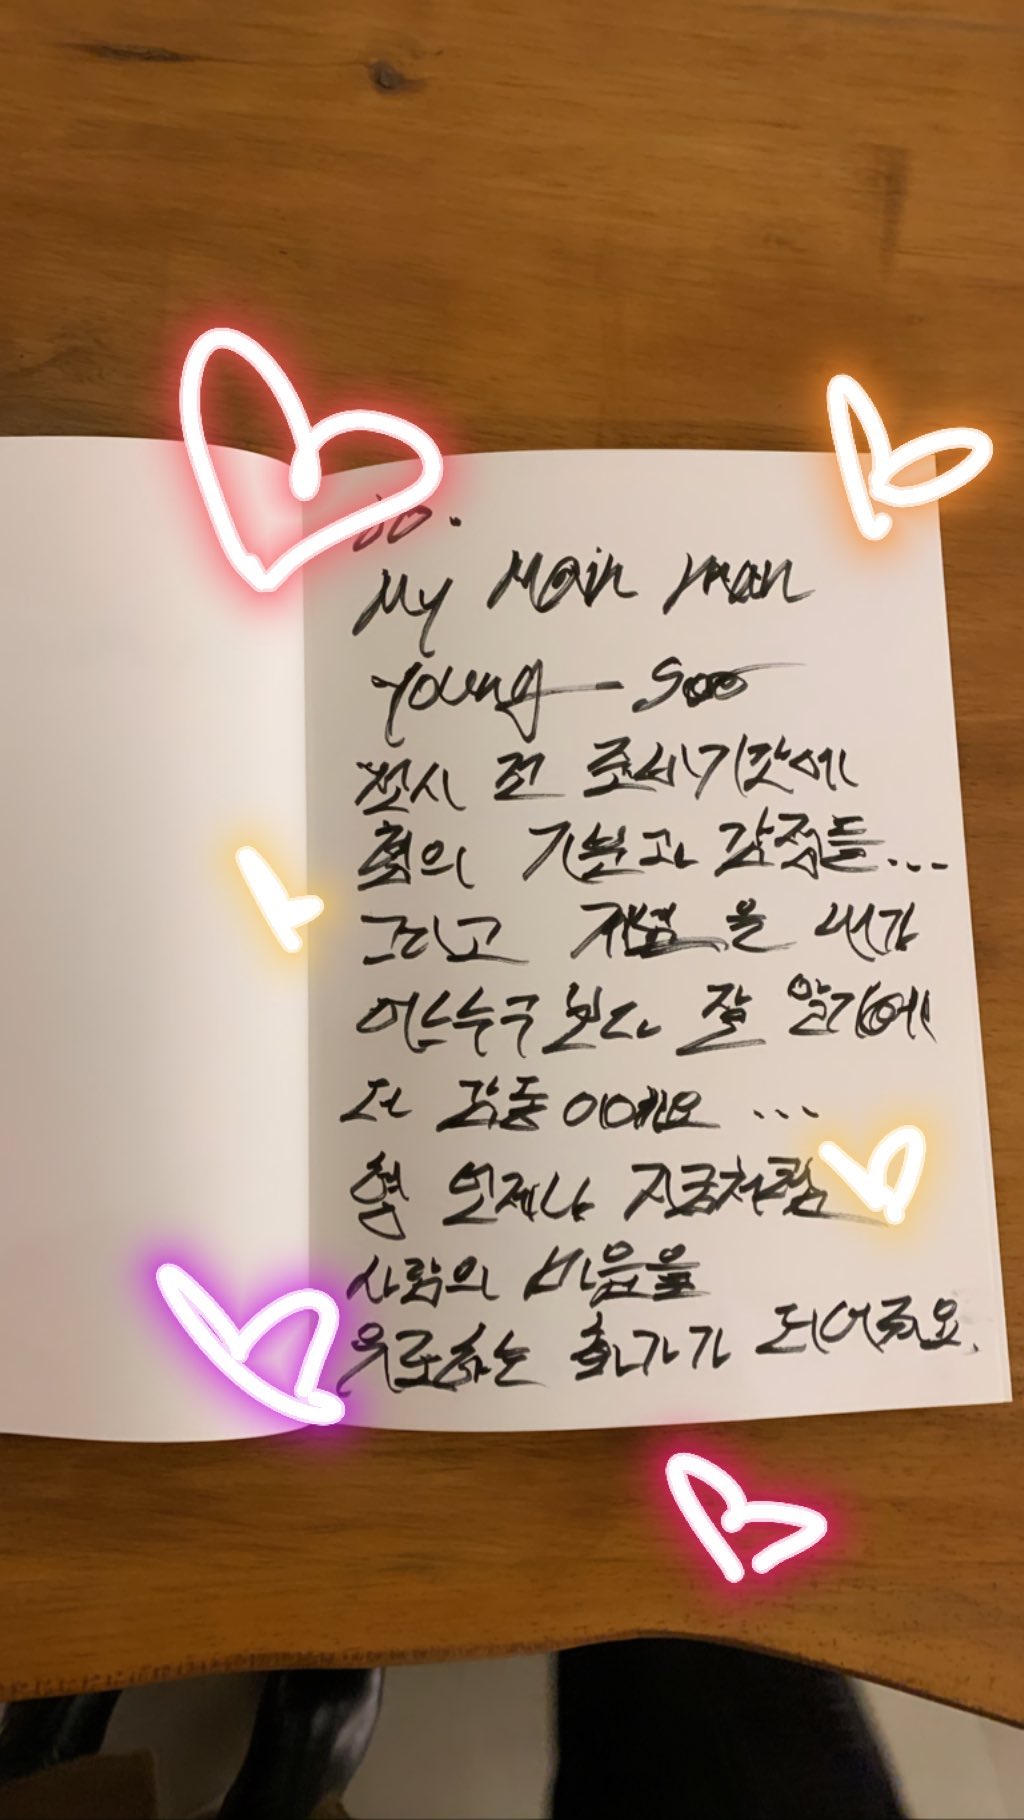 To.
My Main man
Young-Soo
전시 전 준비기간에
형의 기분과 감정들...
그리고 을 내가
어느누구보다 잘 알기에
더 감동이에요 ...
형 언제나 지금처럼
사람의 마음을
위로하는 화가가 되어주요.